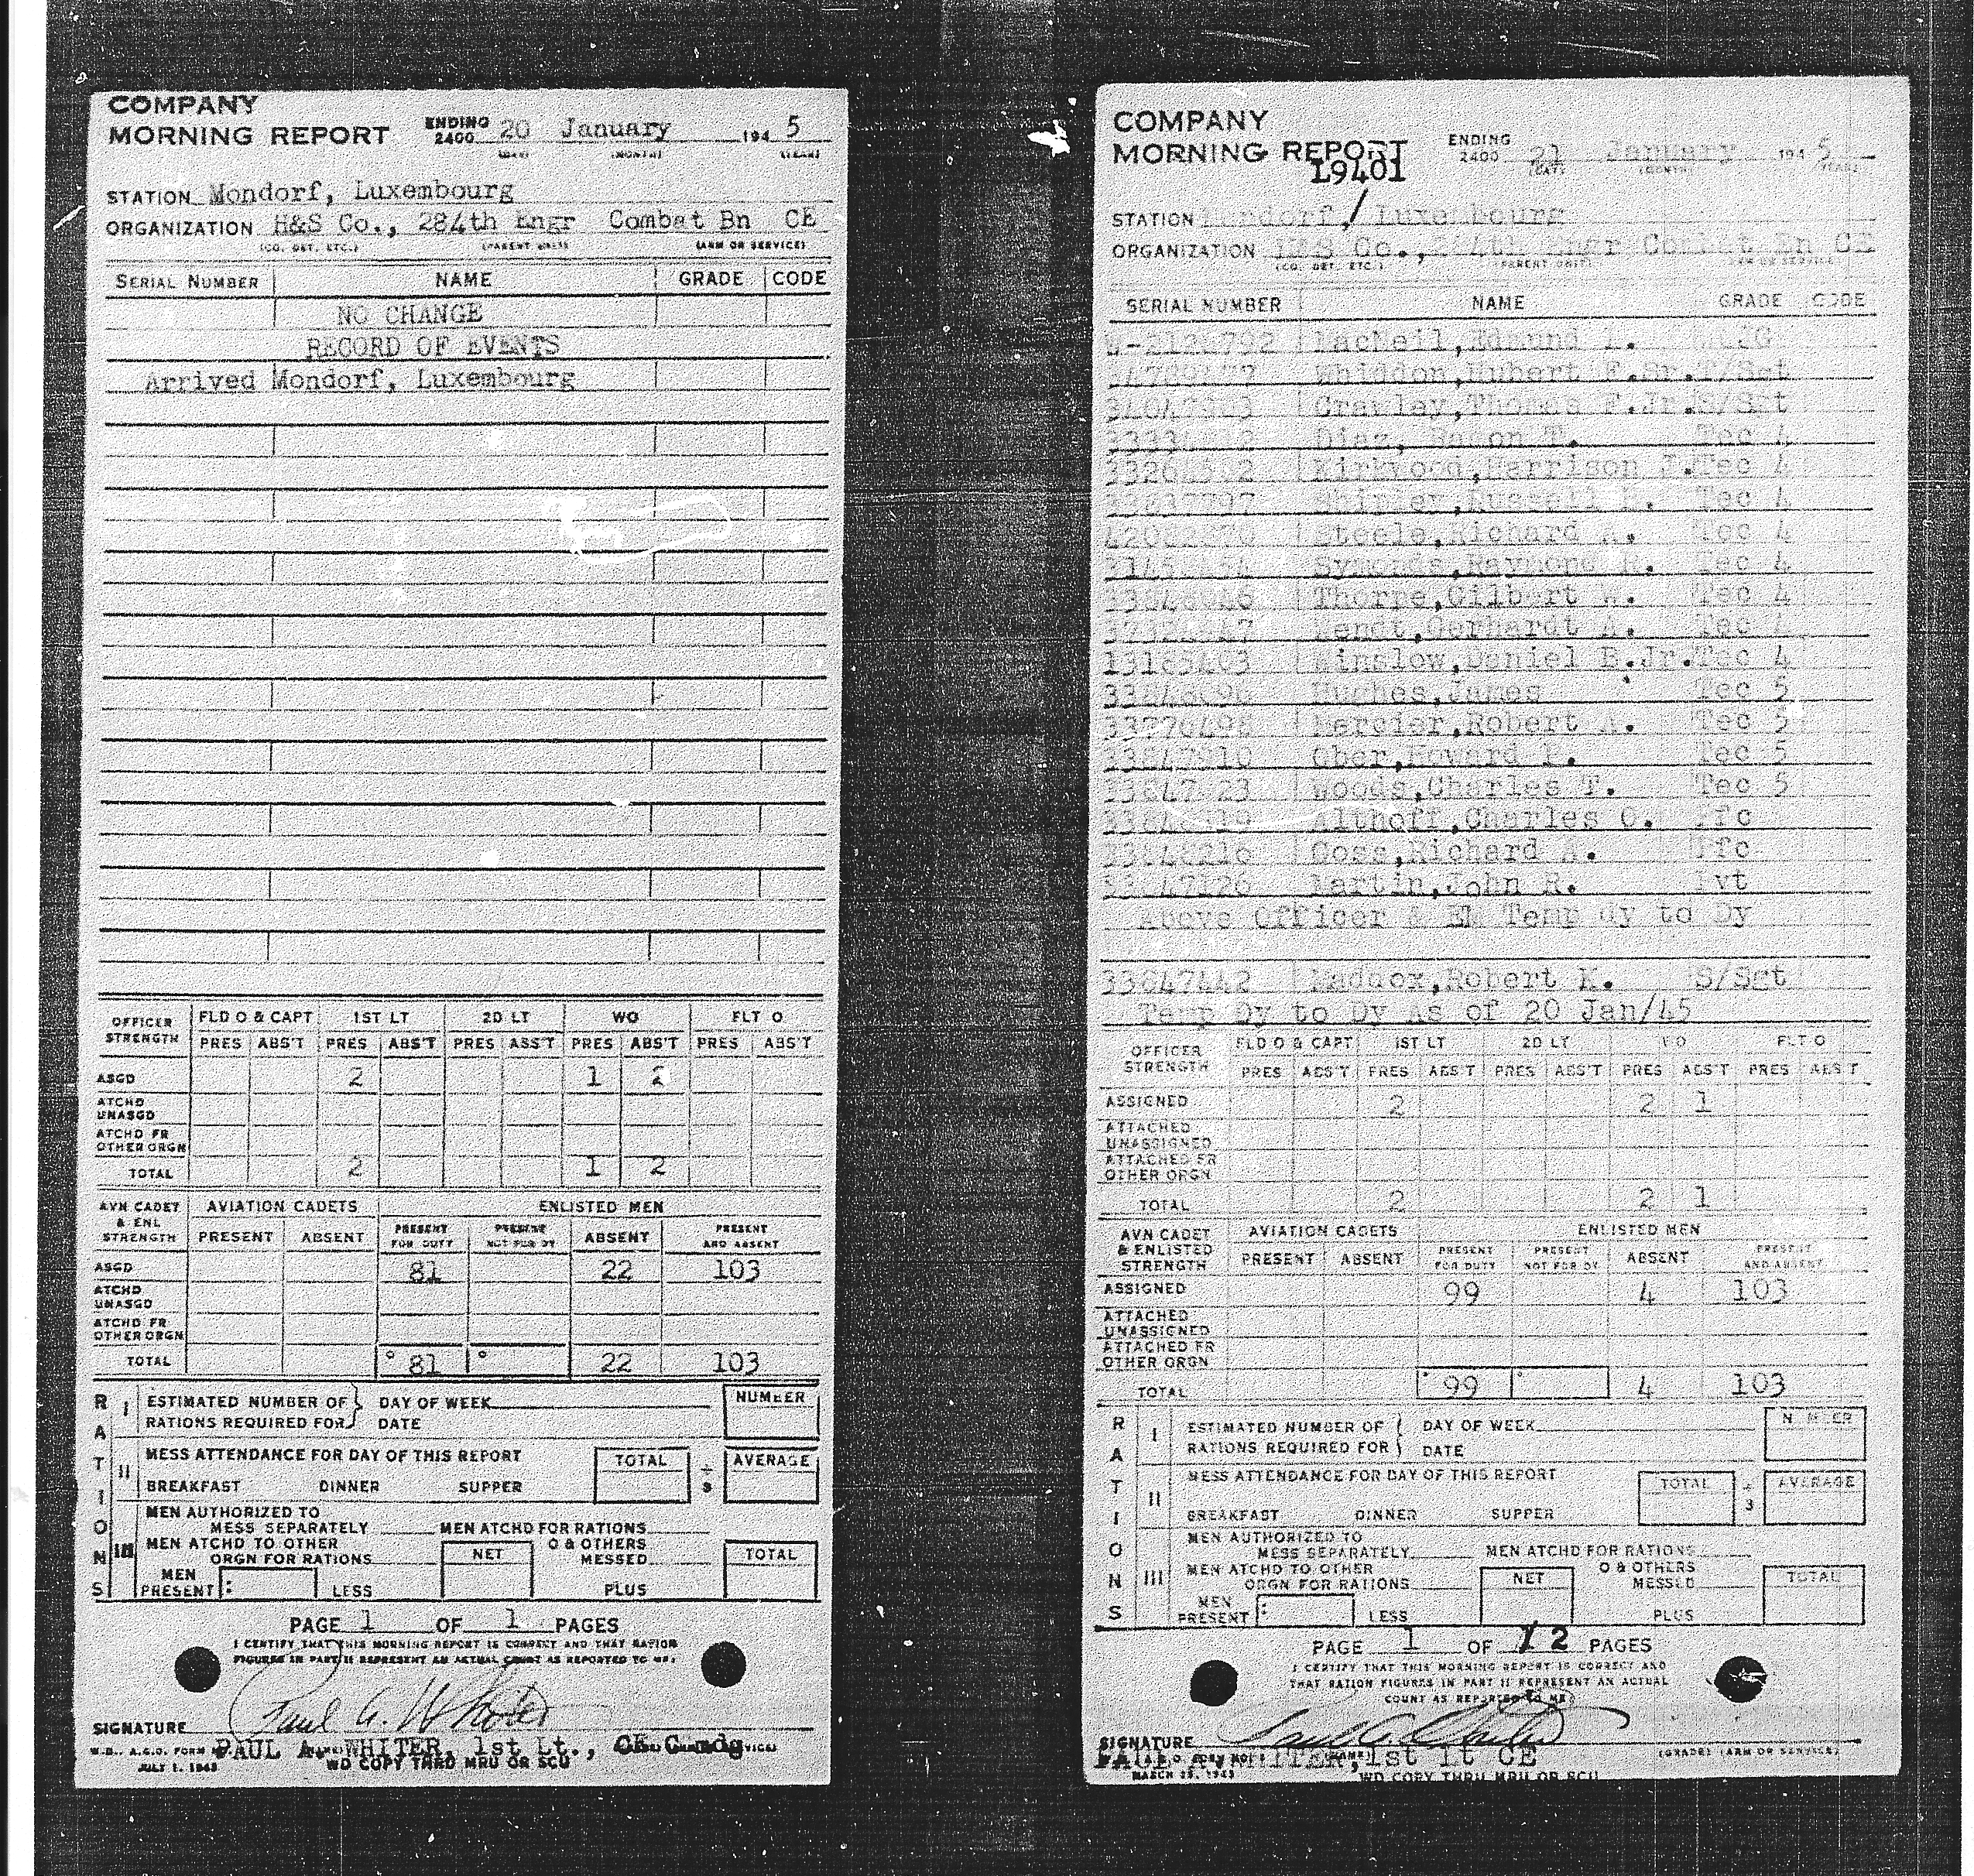 COMPANY
MORNING REPORT ENDING 2400 20 January 194 5
(DAY) (MONTH) (YEAR)
STATION Mondorf, Luxembourg
ORGANIZATION H&S Co., 284th Engr Combat Bn CE
(CO. DET. ETC.) (PARENT UNIT) (ARM OR SERVICE)
SERIAL NUMBER NAME GRADE CODE
NO CHANGE
RECORD OF EVENTS
Arrived Mondorf, Luxembourg
OFFICER STRENGTH FLD O & CAPT 1ST LT 2D LT WO FLT O
PRES ABS'T PRES ABS'T PRES ABS'T PRES ABS'T PRES ABS'T
ASGD 2 1 2
ATCHD UNASGD
ATCHD FR OTHER ORGN
TOTAL 2 1 2
AVN CADET & ENL STRENGTH AVIATION CADETS ENLISTED MEN
PRESENT ABSENT PRESENT FOR DUTY PRESENT NOT FOR DY ABSENT PRESENT AND ABSENT
ASGD 81 22 103
ATCHD UNASGD
ATCHD FR OTHER ORGN
TOTAL 81 22 103
RATIONS
I ESTIMATED NUMBER OF DAY OF WEEK NUMBER
RATIONS REQUIRED FOR DATE
II MESS ATTENDANCE FOR DAY OF THIS REPORT TOTAL ÷ 3 AVERAGE
BREAKFAST DINNER SUPPER
III MEN AUTHORIZED TO
MESS SEPARATELY MEN ATCHD FOR RATIONS
MEN ATCHD TO OTHER O & OTHERS
ORGN FOR RATIONS NET MESSED TOTAL
MEN PRESENT: LESS PLUS
PAGE 1 OF 1 PAGES
I CERTIFY THAT THIS MORNING REPORT IS CORRECT AND THAT RATION
FIGURES IN PART II REPRESENT AN ACTUAL COUNT AS REPORTED TO ME:
SIGNATURE Paul A. Whiter
PAUL A. WHITER, 1st Lt., CE Comdg
W.D., A.G.O. FORM
JULY 1, 1943 WD COPY THRU MRU OR SCU
COMPANY
MORNING REPORT ENDING 2400 21 January 194 5
L9401
STATION Mondorf, Luxembourg
ORGANIZATION H&S Co., 284th Engr Combat Bn CE
(CO. DET. ETC.) (PARENT UNIT)
SERIAL NUMBER NAME GRADE CODE
MacNeil, Edmund WOJG
Whiddon, Hubert F. Sr. T/Sgt
Crawley, Thomas F. Jr. S/Sgt
Diaz, Ramon T. Tec 4
Kirkwood, Harrison J. Tec 4
Shipley, Russell Tec 4
Steele, Richard A. Tec 4
Symonds, Raymond Tec 4
Thorpe, Gilbert W. Tec 4
Wendt, Gerhardt A. Tec 4
13185403 Winslow, Daniel B. Jr. Tec 4
Hughes, James Tec 5
33776498 Mercier, Robert A. Tec 5
Ober, Howard Tec 5
Woods, Charles T. Tec 5
Althoff, Charles O. Pfc
Goss, Richard A. Pfc
Martin, John R. Pvt
Above Officer & EM Temp dy to Dy
33647442 Maddox, Robert K. S/Sgt
Temp Dy to Dy As of 20 Jan/45
OFFICER STRENGTH FLD O & CAPT 1ST LT 2D LT WO FLT O
PRES ABS'T PRES ABS'T PRES ABS'T PRES ABS'T PRES ABS'T
ASSIGNED 2 2 1
ATTACHED UNASSIGNED
ATTACHED FR OTHER ORGN
TOTAL 2 2 1
AVN CADET & ENLISTED STRENGTH AVIATION CADETS ENLISTED MEN
PRESENT ABSENT PRESENT FOR DUTY PRESENT NOT FOR DY ABSENT PRESENT AND ABSENT
ASSIGNED 99 4 103
ATTACHED UNASSIGNED
ATTACHED FR OTHER ORGN
TOTAL 99 4 103
RATIONS
I ESTIMATED NUMBER OF DAY OF WEEK NUMBER
RATIONS REQUIRED FOR DATE
II MESS ATTENDANCE FOR DAY OF THIS REPORT TOTAL ÷ 3 AVERAGE
BREAKFAST DINNER SUPPER
III MEN AUTHORIZED TO
MESS SEPARATELY MEN ATCHD FOR RATIONS
MEN ATCHD TO OTHER O & OTHERS
ORGN FOR RATIONS NET MESSED TOTAL
MEN PRESENT: LESS PLUS
PAGE 1 OF 2 PAGES
I CERTIFY THAT THIS MORNING REPORT IS CORRECT AND
THAT RATION FIGURES IN PART II REPRESENT AN ACTUAL
COUNT AS REPORTED TO ME:
SIGNATURE Paul A. Whiter
PAUL A. WHITER, 1st Lt CE
(GRADE) (ARM OR SERVICE)
MARCH 15, 1943 WD COPY THRU MRU OR SCU